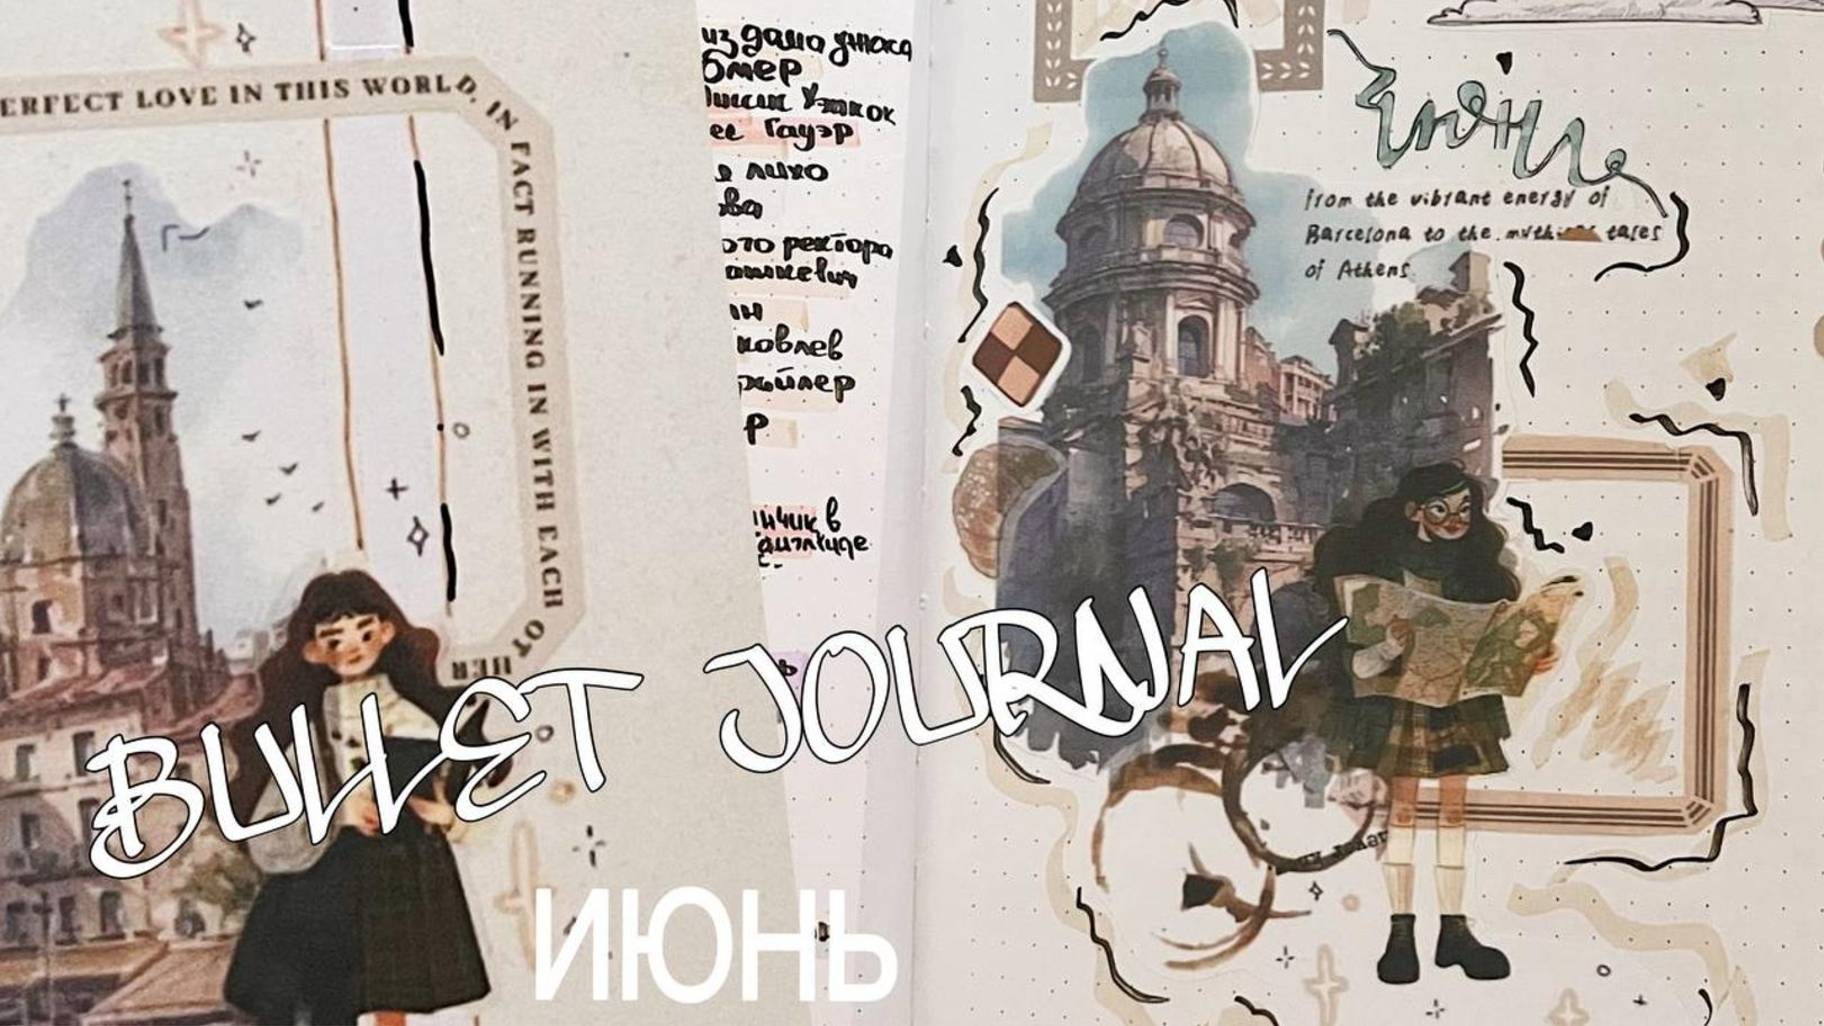 ERFECT LOVE IN THIS WORLD. IN FACT RUNNING IN WITH EACH OTHER
из дома ужаса
бмер
Уэткок
ее Гауэр
лихо
ова
ого ректора
ашкевич
ин
ковлев
р
нчик в
с.
ь
июнь
from the vibrant energy of
Barcelona to the tales
of Athens
BULLET JOURNAL
ИЮНЬ